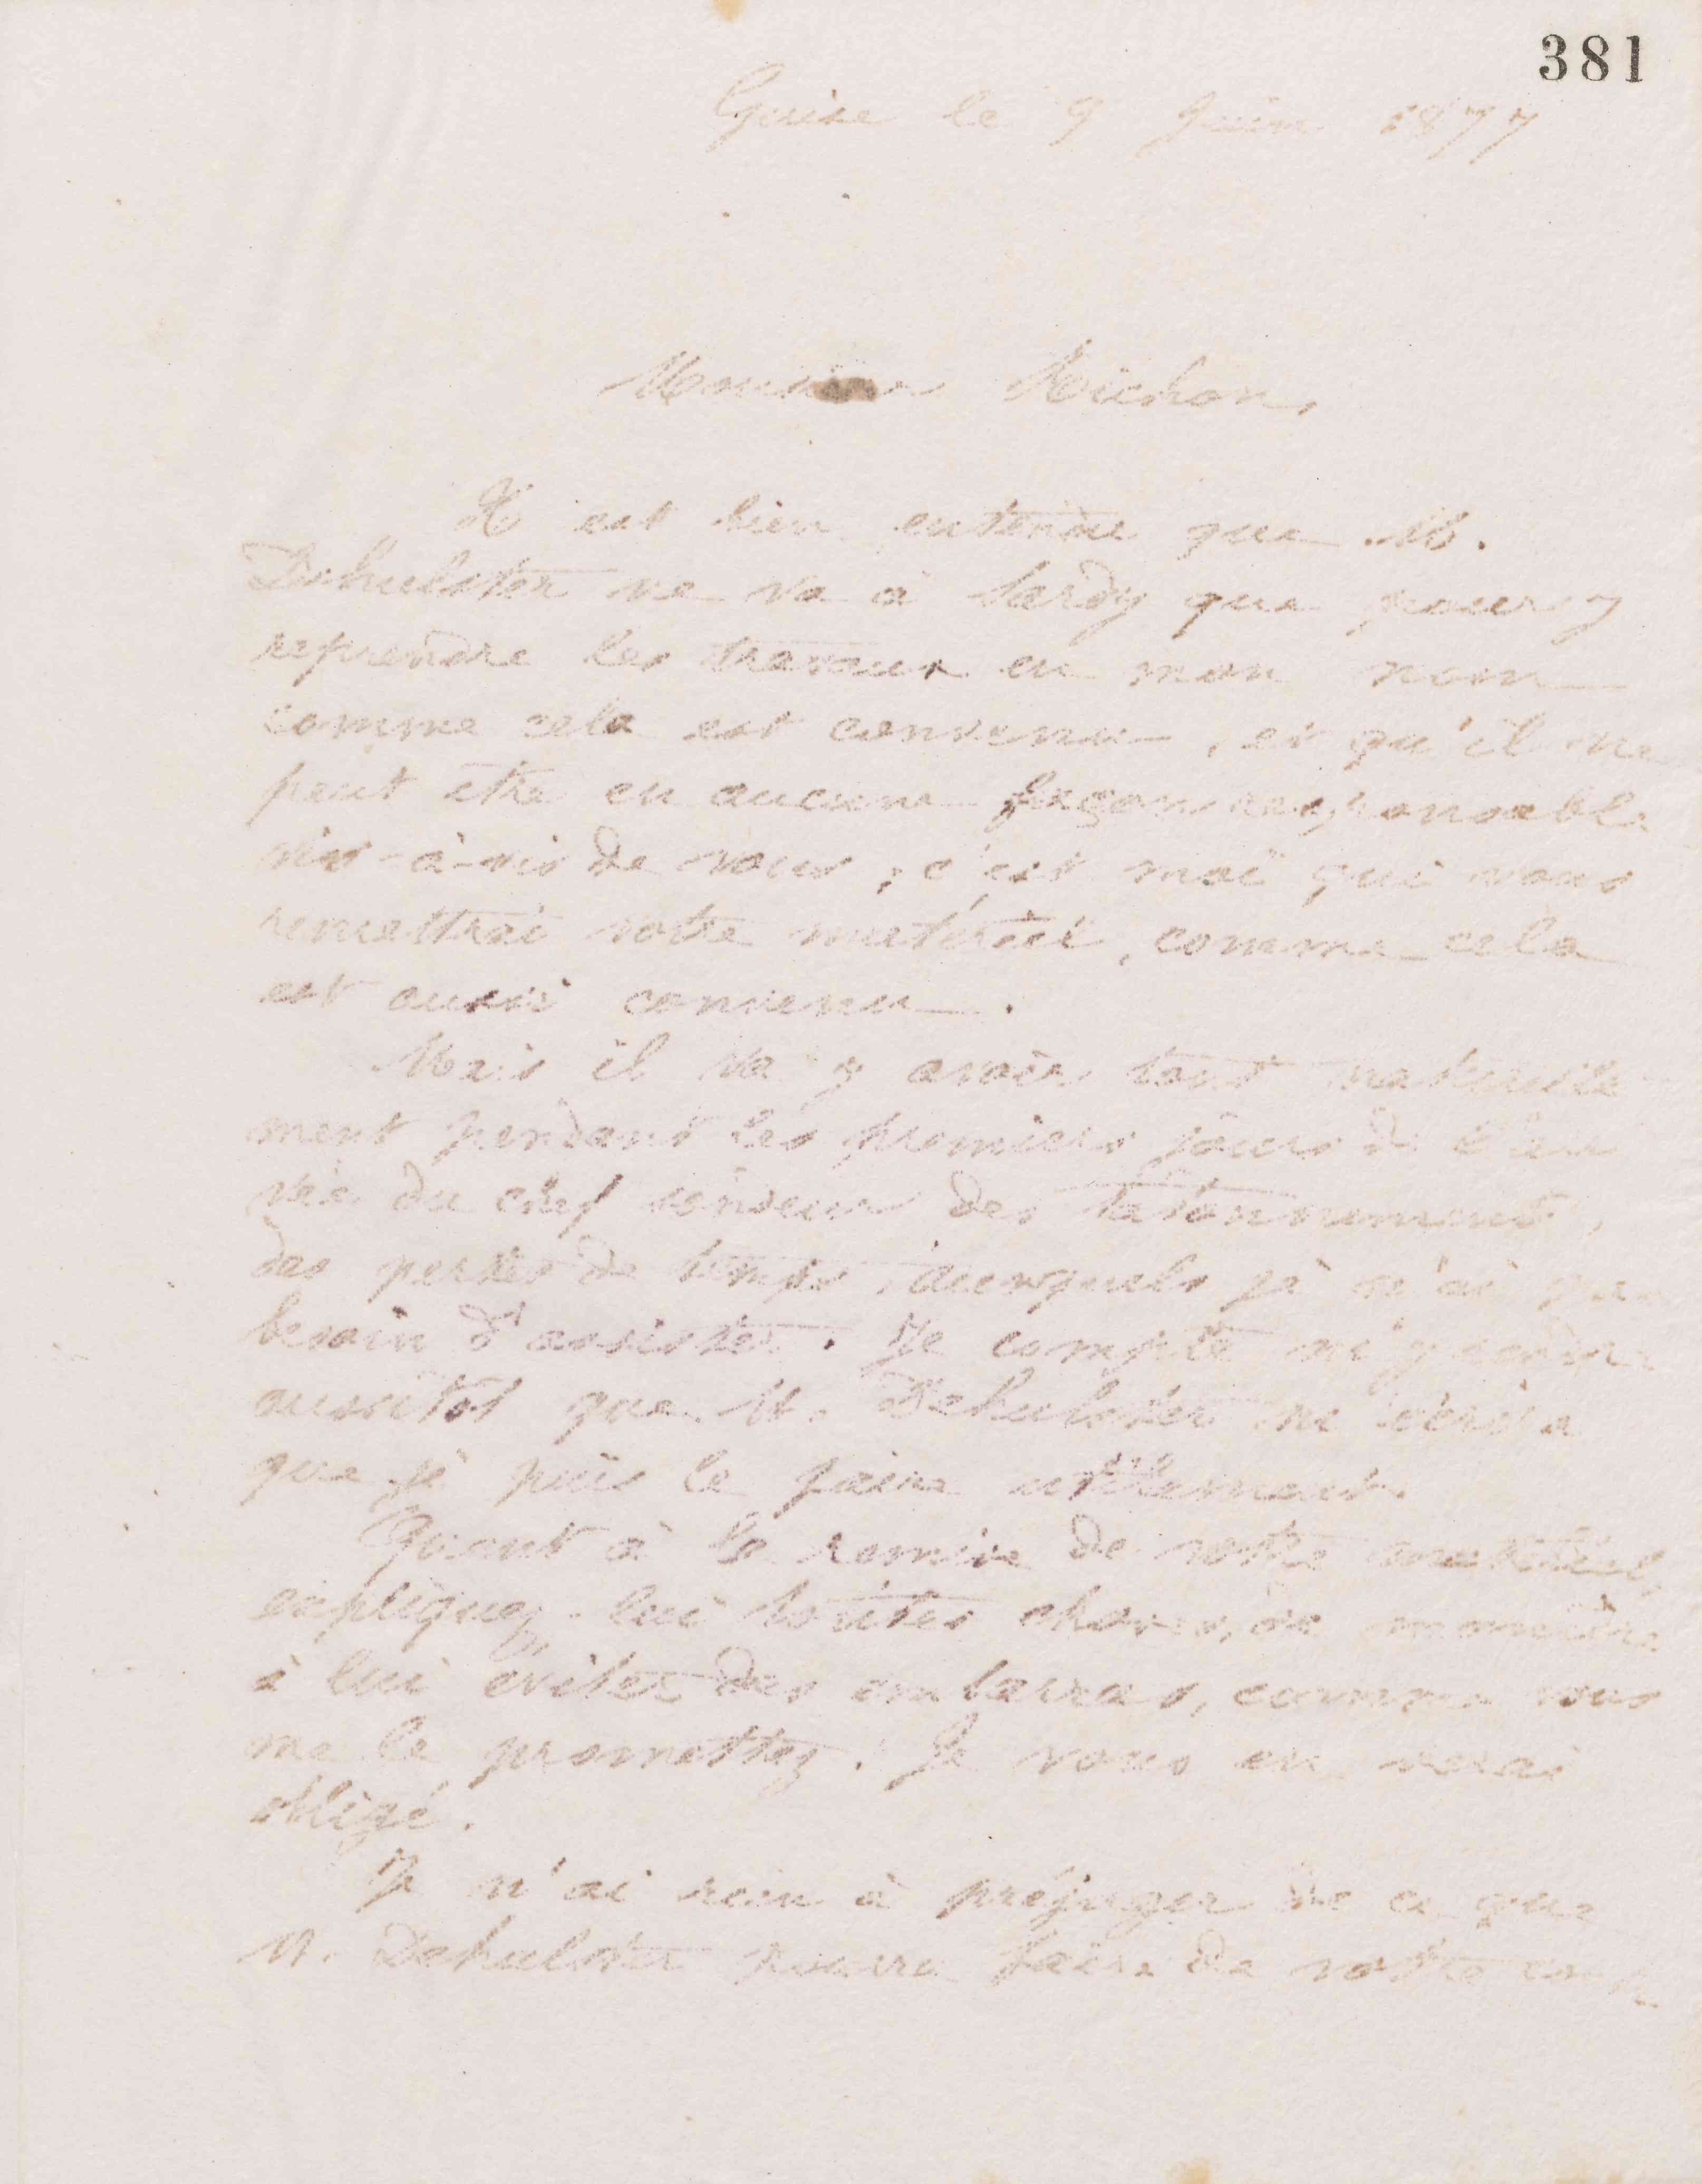 381
Guise le 9 Juin 1877
Monsieur Michon,
Il est bien entendu que M.
Dehulster ne va à Lardy que pour y
reprendre les travaux en mon nom
comme cela est convenu, et qu'il ne
peut être en aucune façon responsable
vis-à-vis de vous, c'est moi qui vous
remettrai votre matériel, comme cela
est aussi convenu.
Mais il va y avoir tout naturelle
ment pendant les premiers jours de l'arri
vée du chef sondeur des tatonnements,
des pertes de temps auxquels je n'ai pas
besoin d'assister. Je compte m'y rendre
aussitôt que M. Dehulster me dira
que je puis le faire utilement.
Quant à la remise de votre matériel,
expliquez-lui toutes choses, de manière
à lui éviter des embarras, comme vous
me le promettez. Je vous en serai
obligé.
Je n'ai rien à préjuger de ce que
M. Dehulster pourra faire de votre